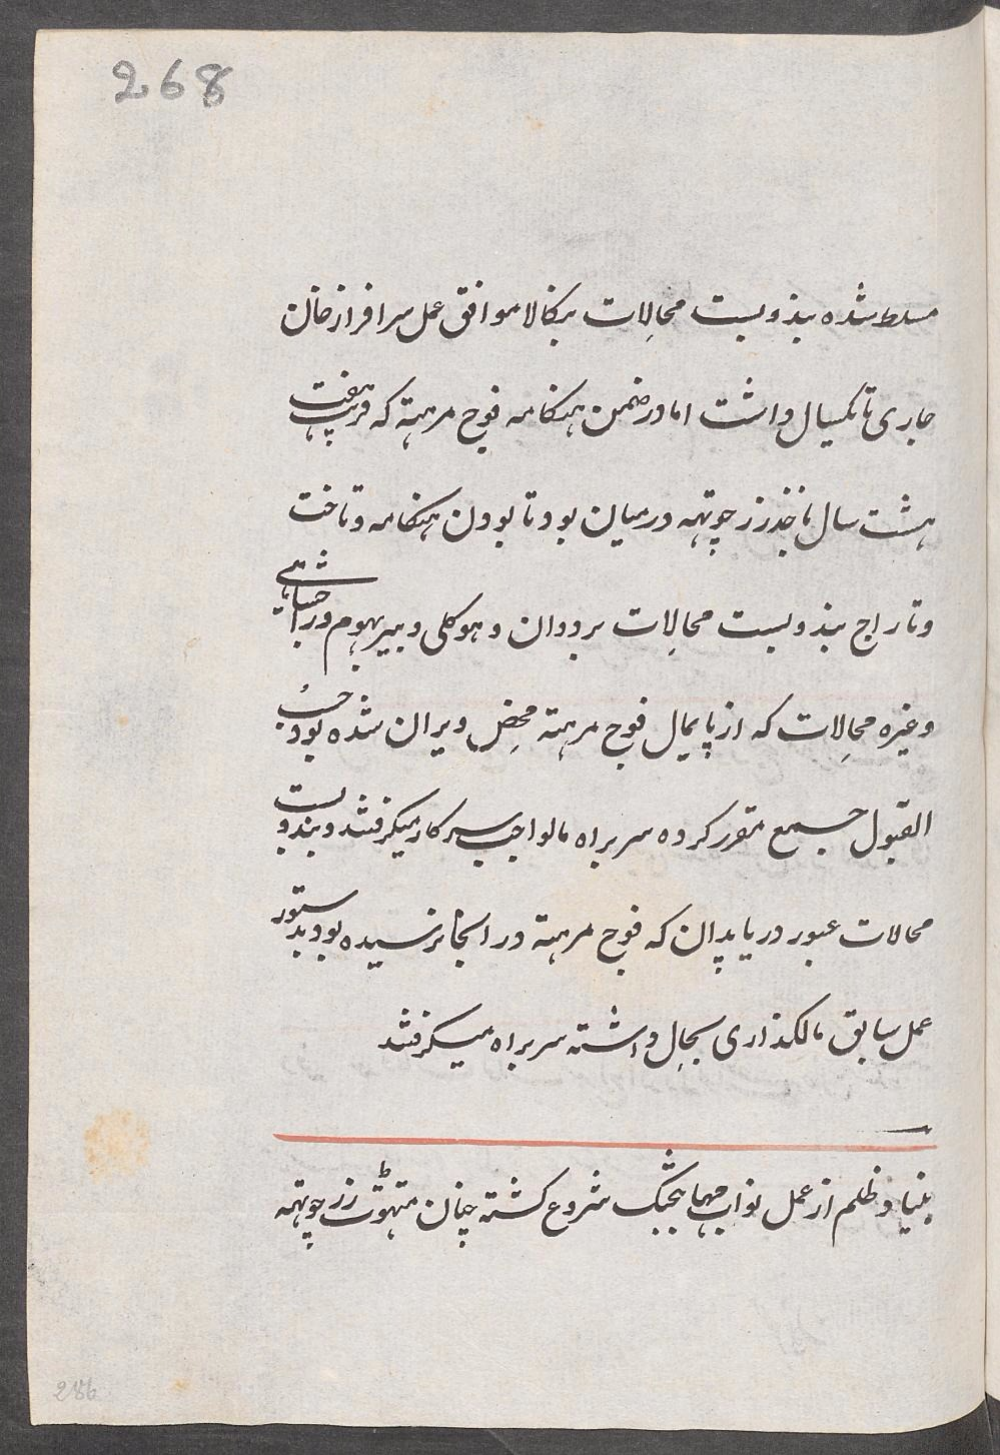 268
مسلط شده بندوبست محالات بنکالا موافق عمل سرافراز خان
جاری تا یکسال داشت اما در ضمن هنکامه فوج مرهته که قریب هفت
هشت سال باخذ زر چوتهه درمیان بود تا بودن هنکامه و تاخت
و تاراج بندوبست محالات بردوان و هوکلی و بیربهوم و
وغیره محالات که از پایمال فوج مرهته محض ویران شده بود حسب
القبول جمیع مقرر کرده سربراه مالواجب سرکار میکرفتند و بندوبست
محالات عبور دریا پدان که فوج مرهته در انجا نرسیده بود بدستور
عمل سابق مالکذاری بحال داشته سربراه میکرفتند
بنیاد ظلم از عمل نواب مهابتجنک شروع کشته چنان زر چوتهه
286